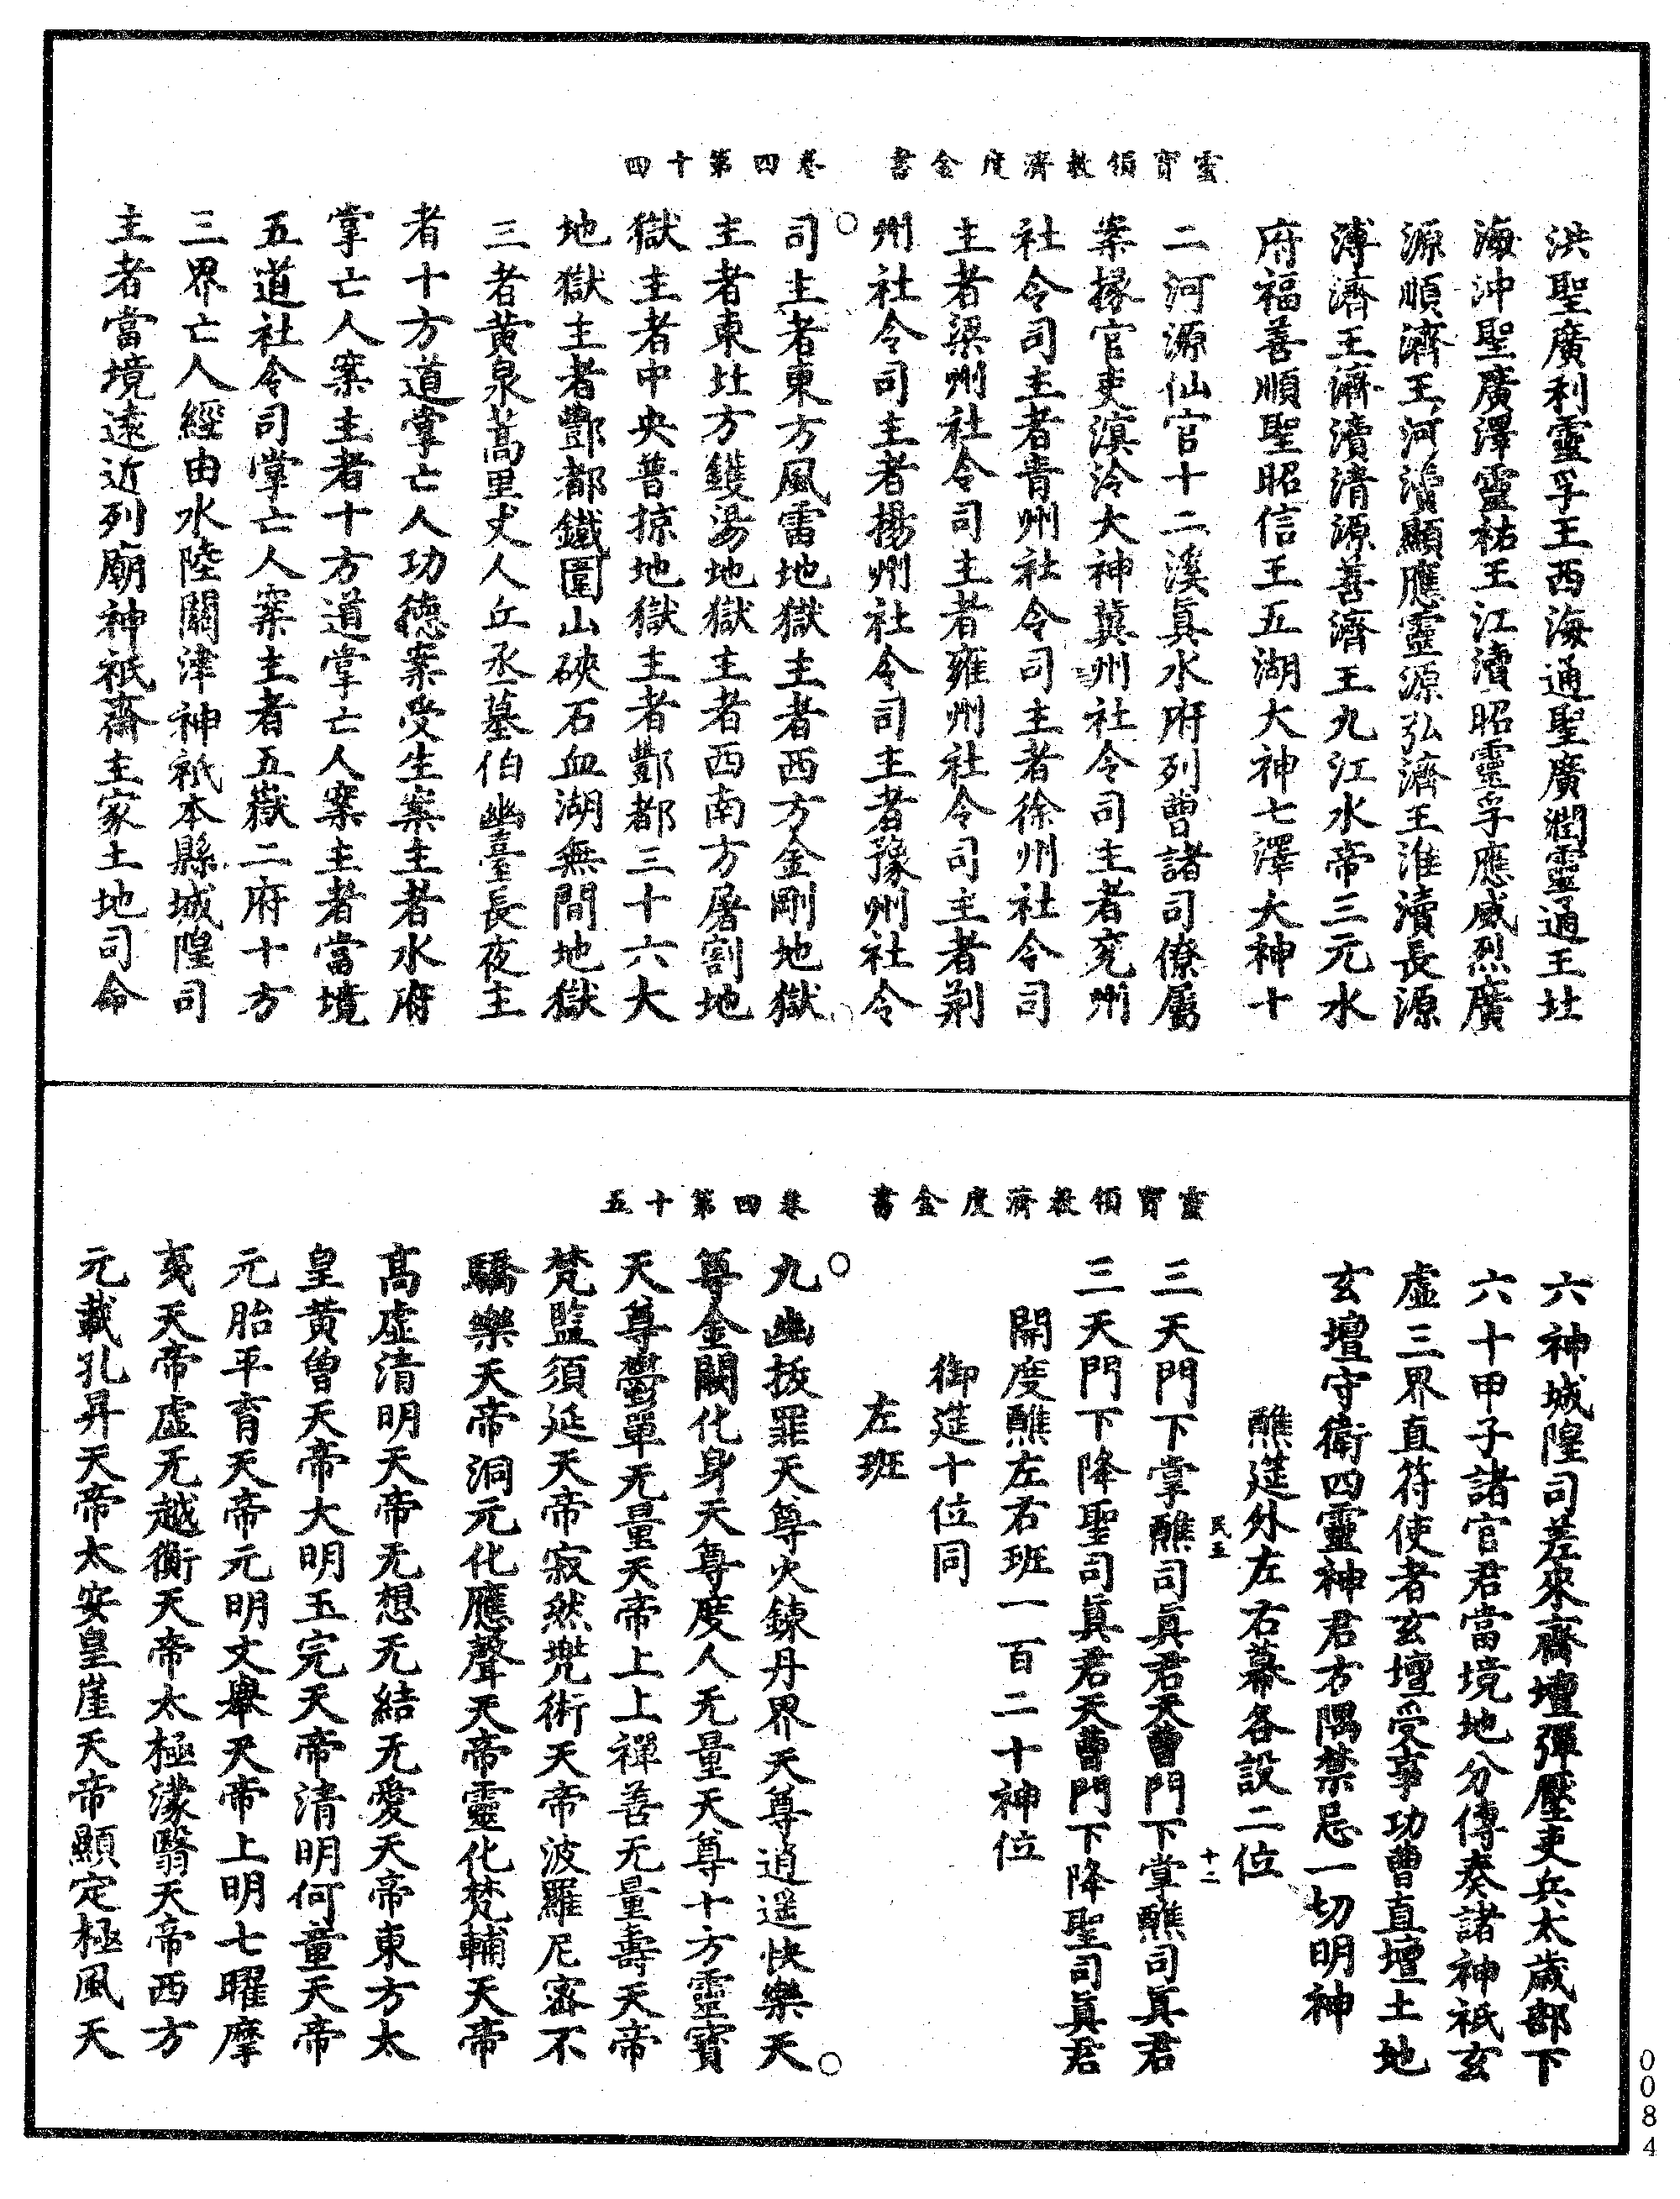 靈寶領教濟度金書　卷四第十四
洪聖廣利靈孚王西海通聖廣潤靈通王北
海沖聖廣澤靈祐王江瀆昭靈孚應威烈廣
源順濟王河瀆顯應靈源弘濟王淮瀆長源
溥濟王濟瀆清源善濟王九江水帝三元水
府福善順聖昭信王五湖大神七澤大神十
二河源仙官十二溪眞水府列曹諸司僚屬
案掾官吏溟泠大神冀州社令司主者兖州
社令司主者青州社令司主者徐州社令司
主者梁州社令司主者雍州社令司主者荆
州社令司主者揚州社令司主者豫州社令
司主者東方風雷地獄主者西方金剛地獄
主者東北方鑊湯地獄主者西南方屠割地
獄主者中央普掠地獄主者酆都三十六大
地獄主者酆都鐵圍山硤石血湖無間地獄
三者黄泉蒿里丈人丘丞墓伯幽臺長夜主
者十方道掌亡人功德案受生案主者水府
掌亡人案主者十方道掌亡人案主者當境
五道社令司掌亡人案主者五嶽二府十方
三界亡人經由水陸關津神祇本縣城隍司
主者當境遠近列廟神祇齋主家土地司命
靈寶領教濟度金書　卷四第十五
六神城隍司差來齋壇彈壓吏兵太歲部下
六十甲子諸官君當境地分傳奏諸神祇玄
虛三界直符使者玄壇受事功曹直壇土地
玄壇守衛四靈神君方隅禁忌一切明神
醮筵外左右幕各設二位
民五　十二
三天門下掌醮司眞君天曹門下掌醮司眞君
三天門下降聖司眞君天曹門下降聖司眞君
開度醮左右班一百二十神位
御筵十位同
左班
九幽拔罪天尊火鍊丹界天尊逍遥快樂天
尊金闕化身天尊度人无量天尊十方靈寶
天尊鬱單无量天帝上上禪善无量壽天帝
梵監須延天帝寂然兠術天帝波羅尼密不
驕樂天帝洞元化應聲天帝靈化梵輔天帝
高虛清明天帝无想无結无愛天帝東方太
皇黄曾天帝大明玉完天帝清明何童天帝
元胎平育天帝元明文舉天帝上明七曜摩
夷天帝虛无越衡天帝太極濛翳天帝西方
元載孔昇天帝太安皇崖天帝顯定極風天
0084